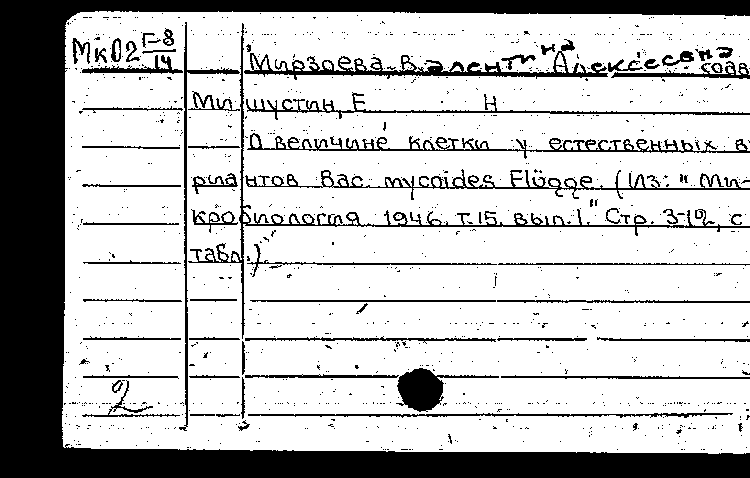 МкО2 Г-8/14
Мирзоева, Валентина Алексеевна соав
Мишустин, Е Н
О величине клетки у естественных ва
риантов Bac. mycoides Flügge. (Из: "Ми-
кробиология 1946. т.15. вып.1." Стр. 3-12, с
табл.)
2